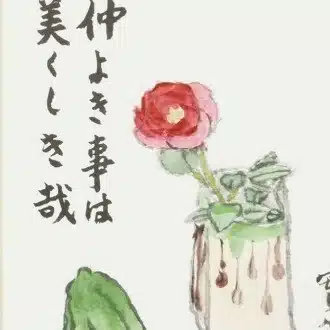 仲よき事は
美くしき哉
實